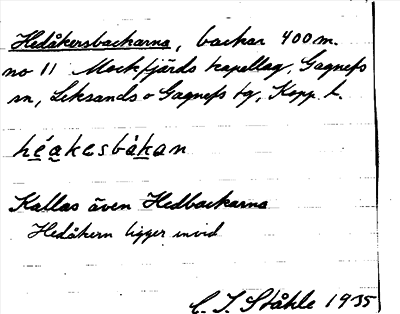 Hedåkersbackarna, backar 400 m.
no 11 Mockfjärds kapellag, Gagnefs
sn, Leksands o Gagnefs tg, Kopp. l.
héakesbàkan
Kallas även Hedbackarna
Hedåkern ligger invid
C. I. Ståhle 1935